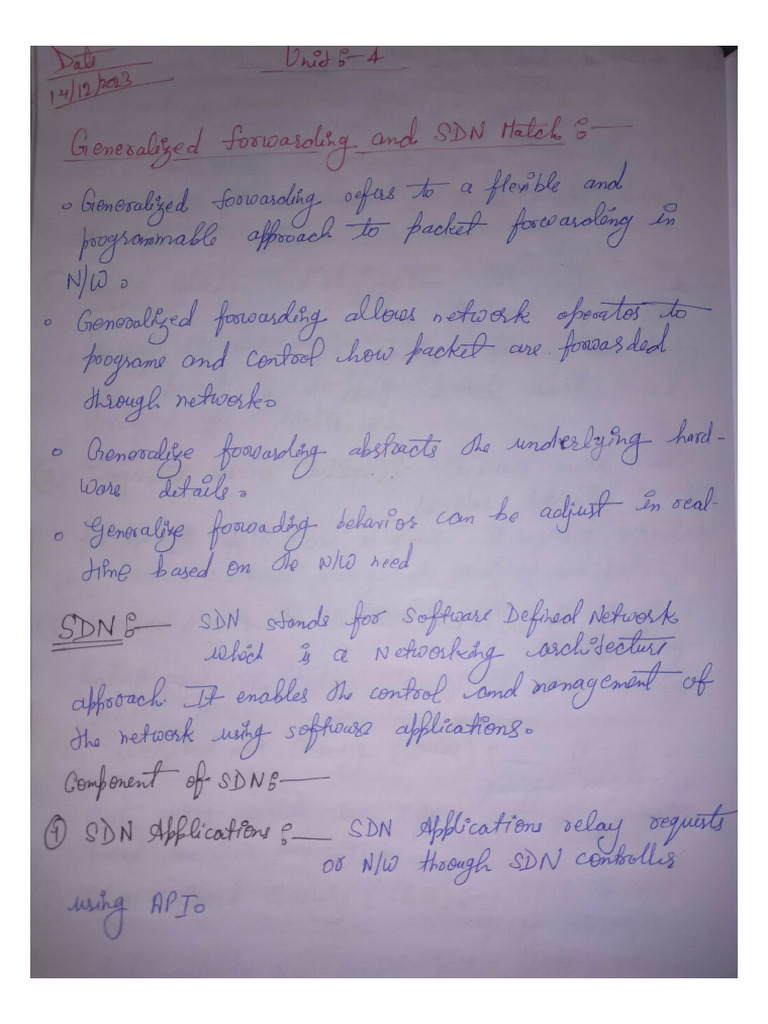 Date
Unit :- 4
14/12/2023
Generalized forwarding and SDN Match :-
o Generalized forwarding refers to a flexible and
programmable approach to packet forwarding in
N/W.
o Generalized forwarding allows network operator to
programe and control how packet are forwarded
through network.
o Generalize forwarding abstracts the underlying hard-
ware details.
o Generalize forwading behavior can be adjust in real-
time based on the N/W need
SDN :- SDN stands for Software Defined Network
which is a Networking architecture
approach. It enables the control and management of
the network using software applications.
Component of SDN :-
① SDN Applications :- SDN Applications relay requests
or N/W through SDN controller
using API.